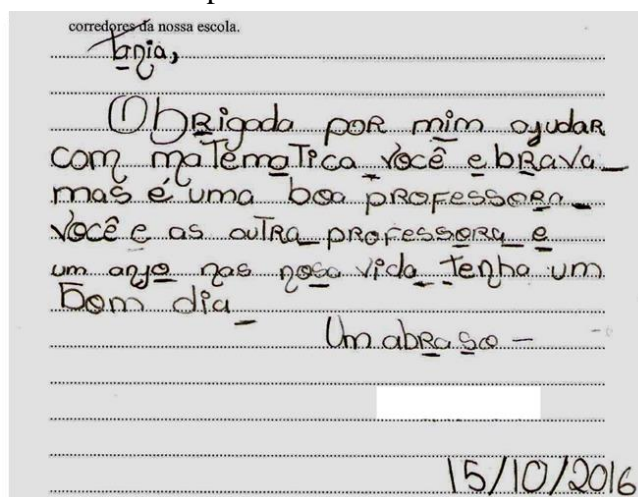 corredores da nossa escola.
Tania,
Obrigada por mim ajudar
com matematica você e brava
mas é uma boa professora
você e as outra professora e
um anjo nas nosa vida tenha um
bom dia
Um abraso -
15/10/2016